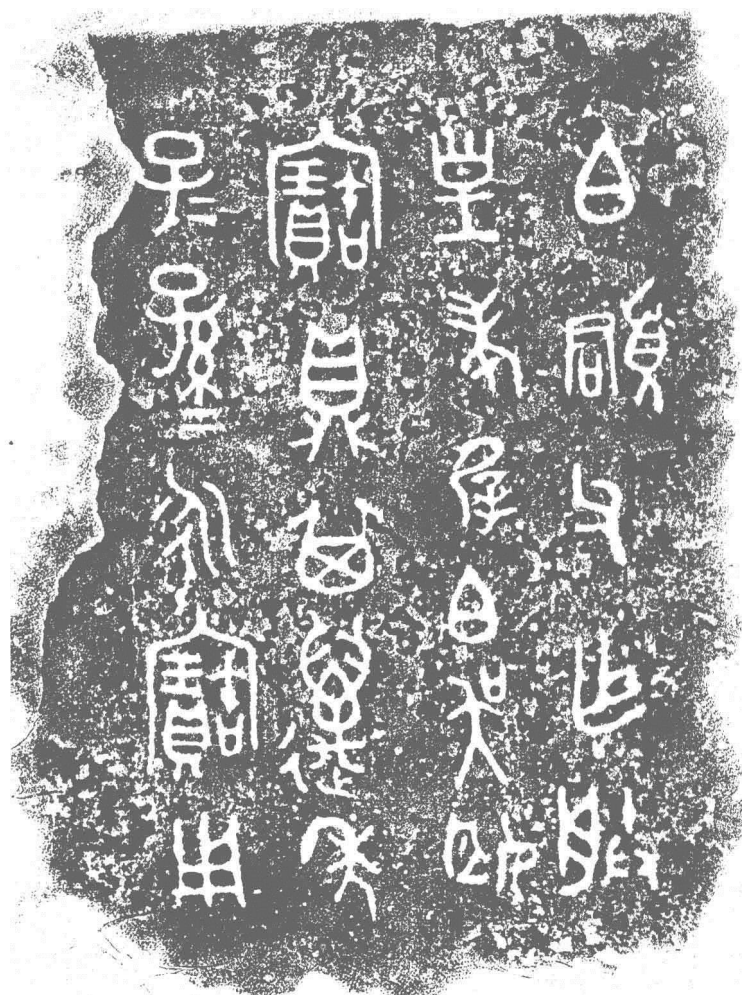 白頵父乍朕
皇考屖白吳姬
寶鼎其邁年
子=孫=永寶用